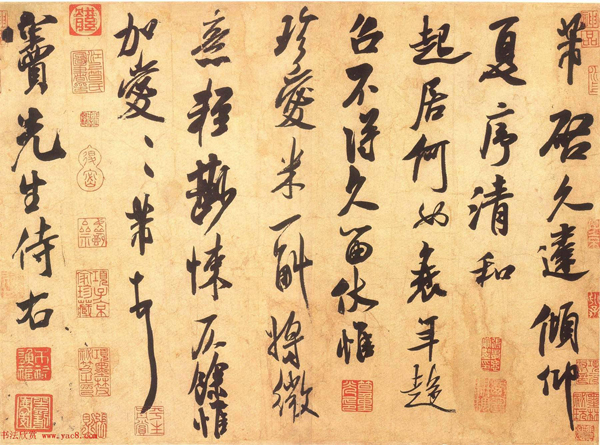 芾啓久違傾仰
夏序清和
起居何如衰年趨
召不得久留伏惟
珍愛米一斛將微
意輕尠悚仄餘惟
加愛〻芾頓首
竇先生侍右
項子京
家珍藏
书法欣赏 www.yac8.com